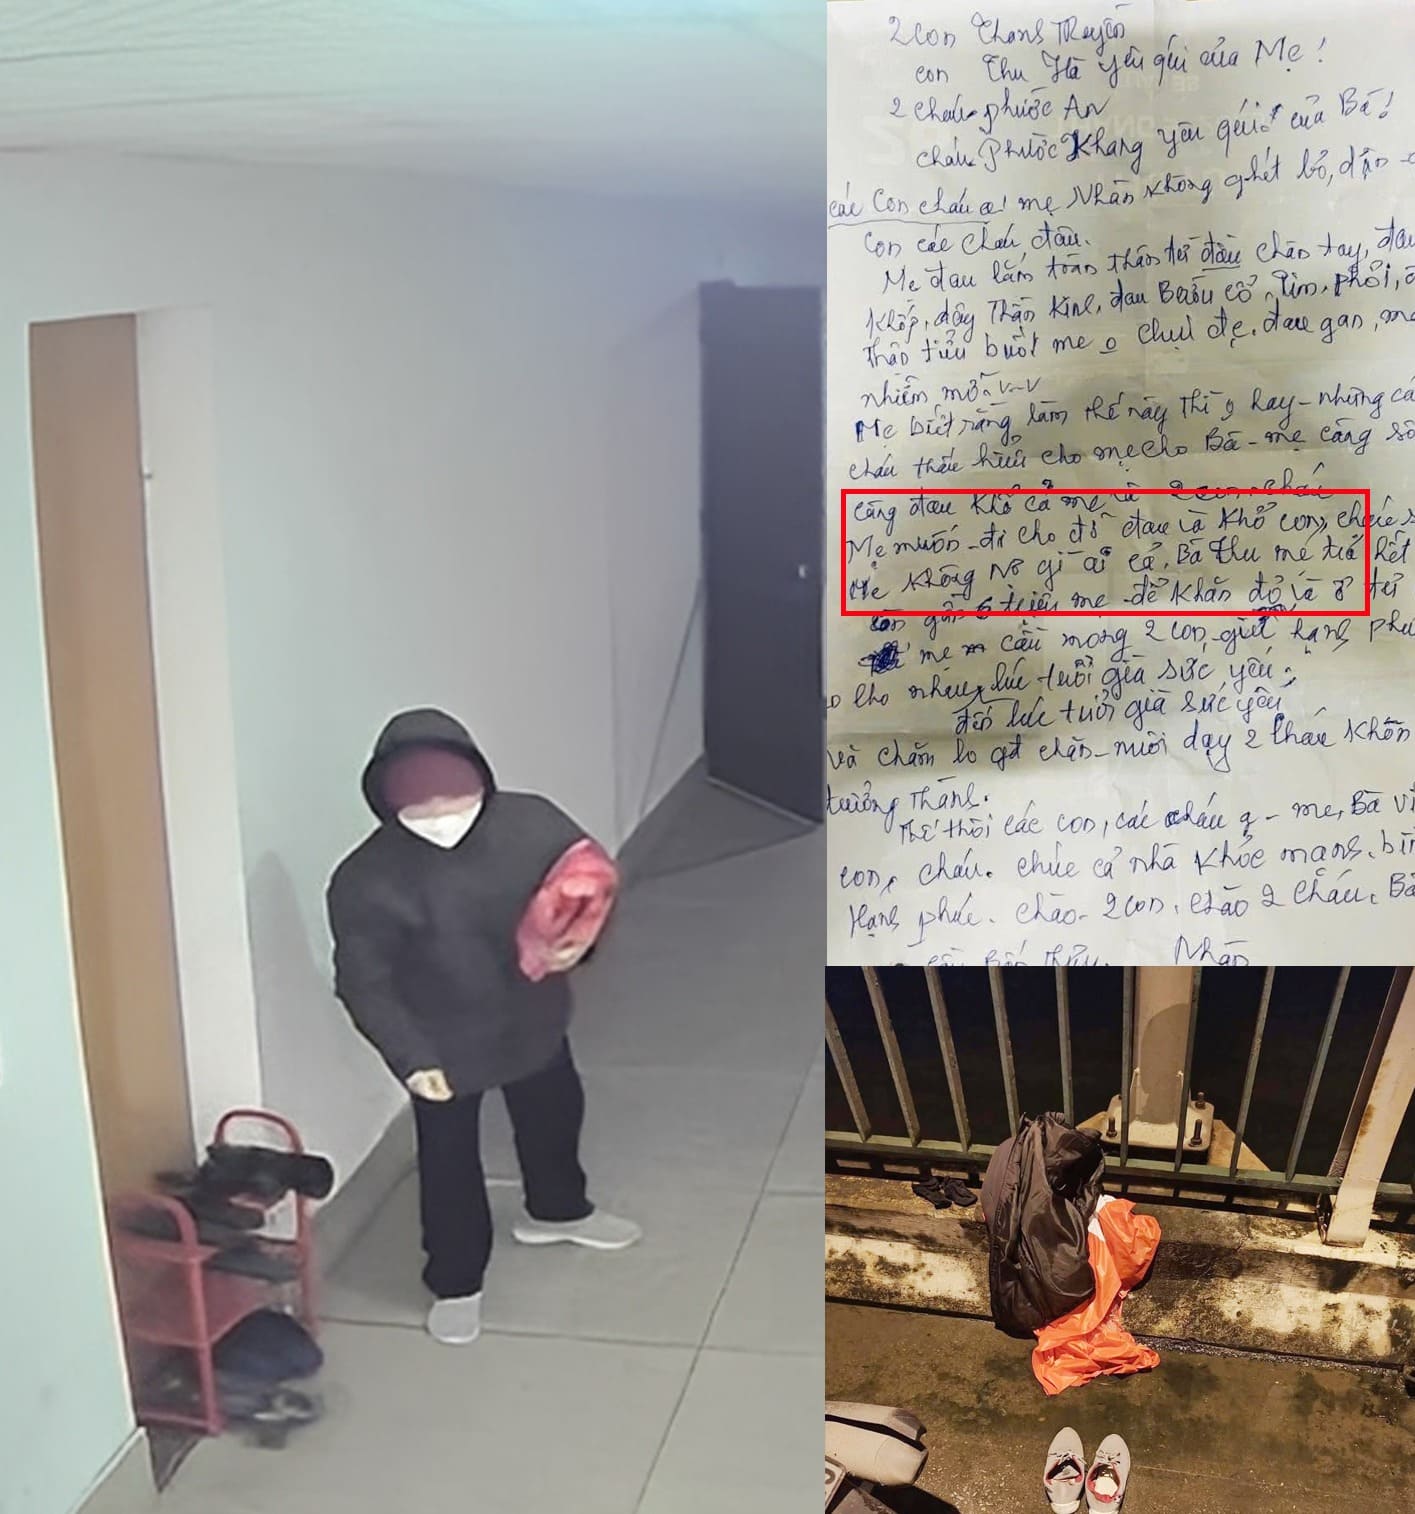 2 con Thanh Truyền
con Thu Hà yêu quí của Mẹ!
2 cháu phước An
cháu Phước Khang yêu quí của Bà!
các con cháu ơi mẹ Nhàn không ghét bỏ, dận
con các cháu đâu.
Mẹ đau lắm toàn thân từ đầu chân tay, đau
khớp, dây Thần Kinh, đau Bướu cổ, Tim, phổi,
thận tiểu buốt mẹ o chịu đc, đau gan,
nhiễm mỡ v-v
Mẹ biết rằng làm thế này thì o hay - những
cháu thấu hiểu cho mẹ cho Bà - mẹ càng
càng đau khổ cả mẹ và 2 con, cháu
Mẹ muốn đi cho đỡ đau và khổ con, cháu
Mẹ không nợ gì ai cả. Bà Thu mẹ trả hết
còn gần 6 triệu mẹ để khăn đỏ và ở tủ
mẹ cầu mong 2 con giữ hạnh
cho nhau lúc tuổi già sức yếu;
đến lúc tuổi già sức yếu
và chăm lo nuôi dạy 2 cháu khôn
trưởng Thành.
Thế thôi các con, các cháu - mẹ, Bà
con, cháu. chúc cả nhà khỏe mạnh,
Hạnh phúc. chào 2 con, chào 2 cháu.
Nhàn